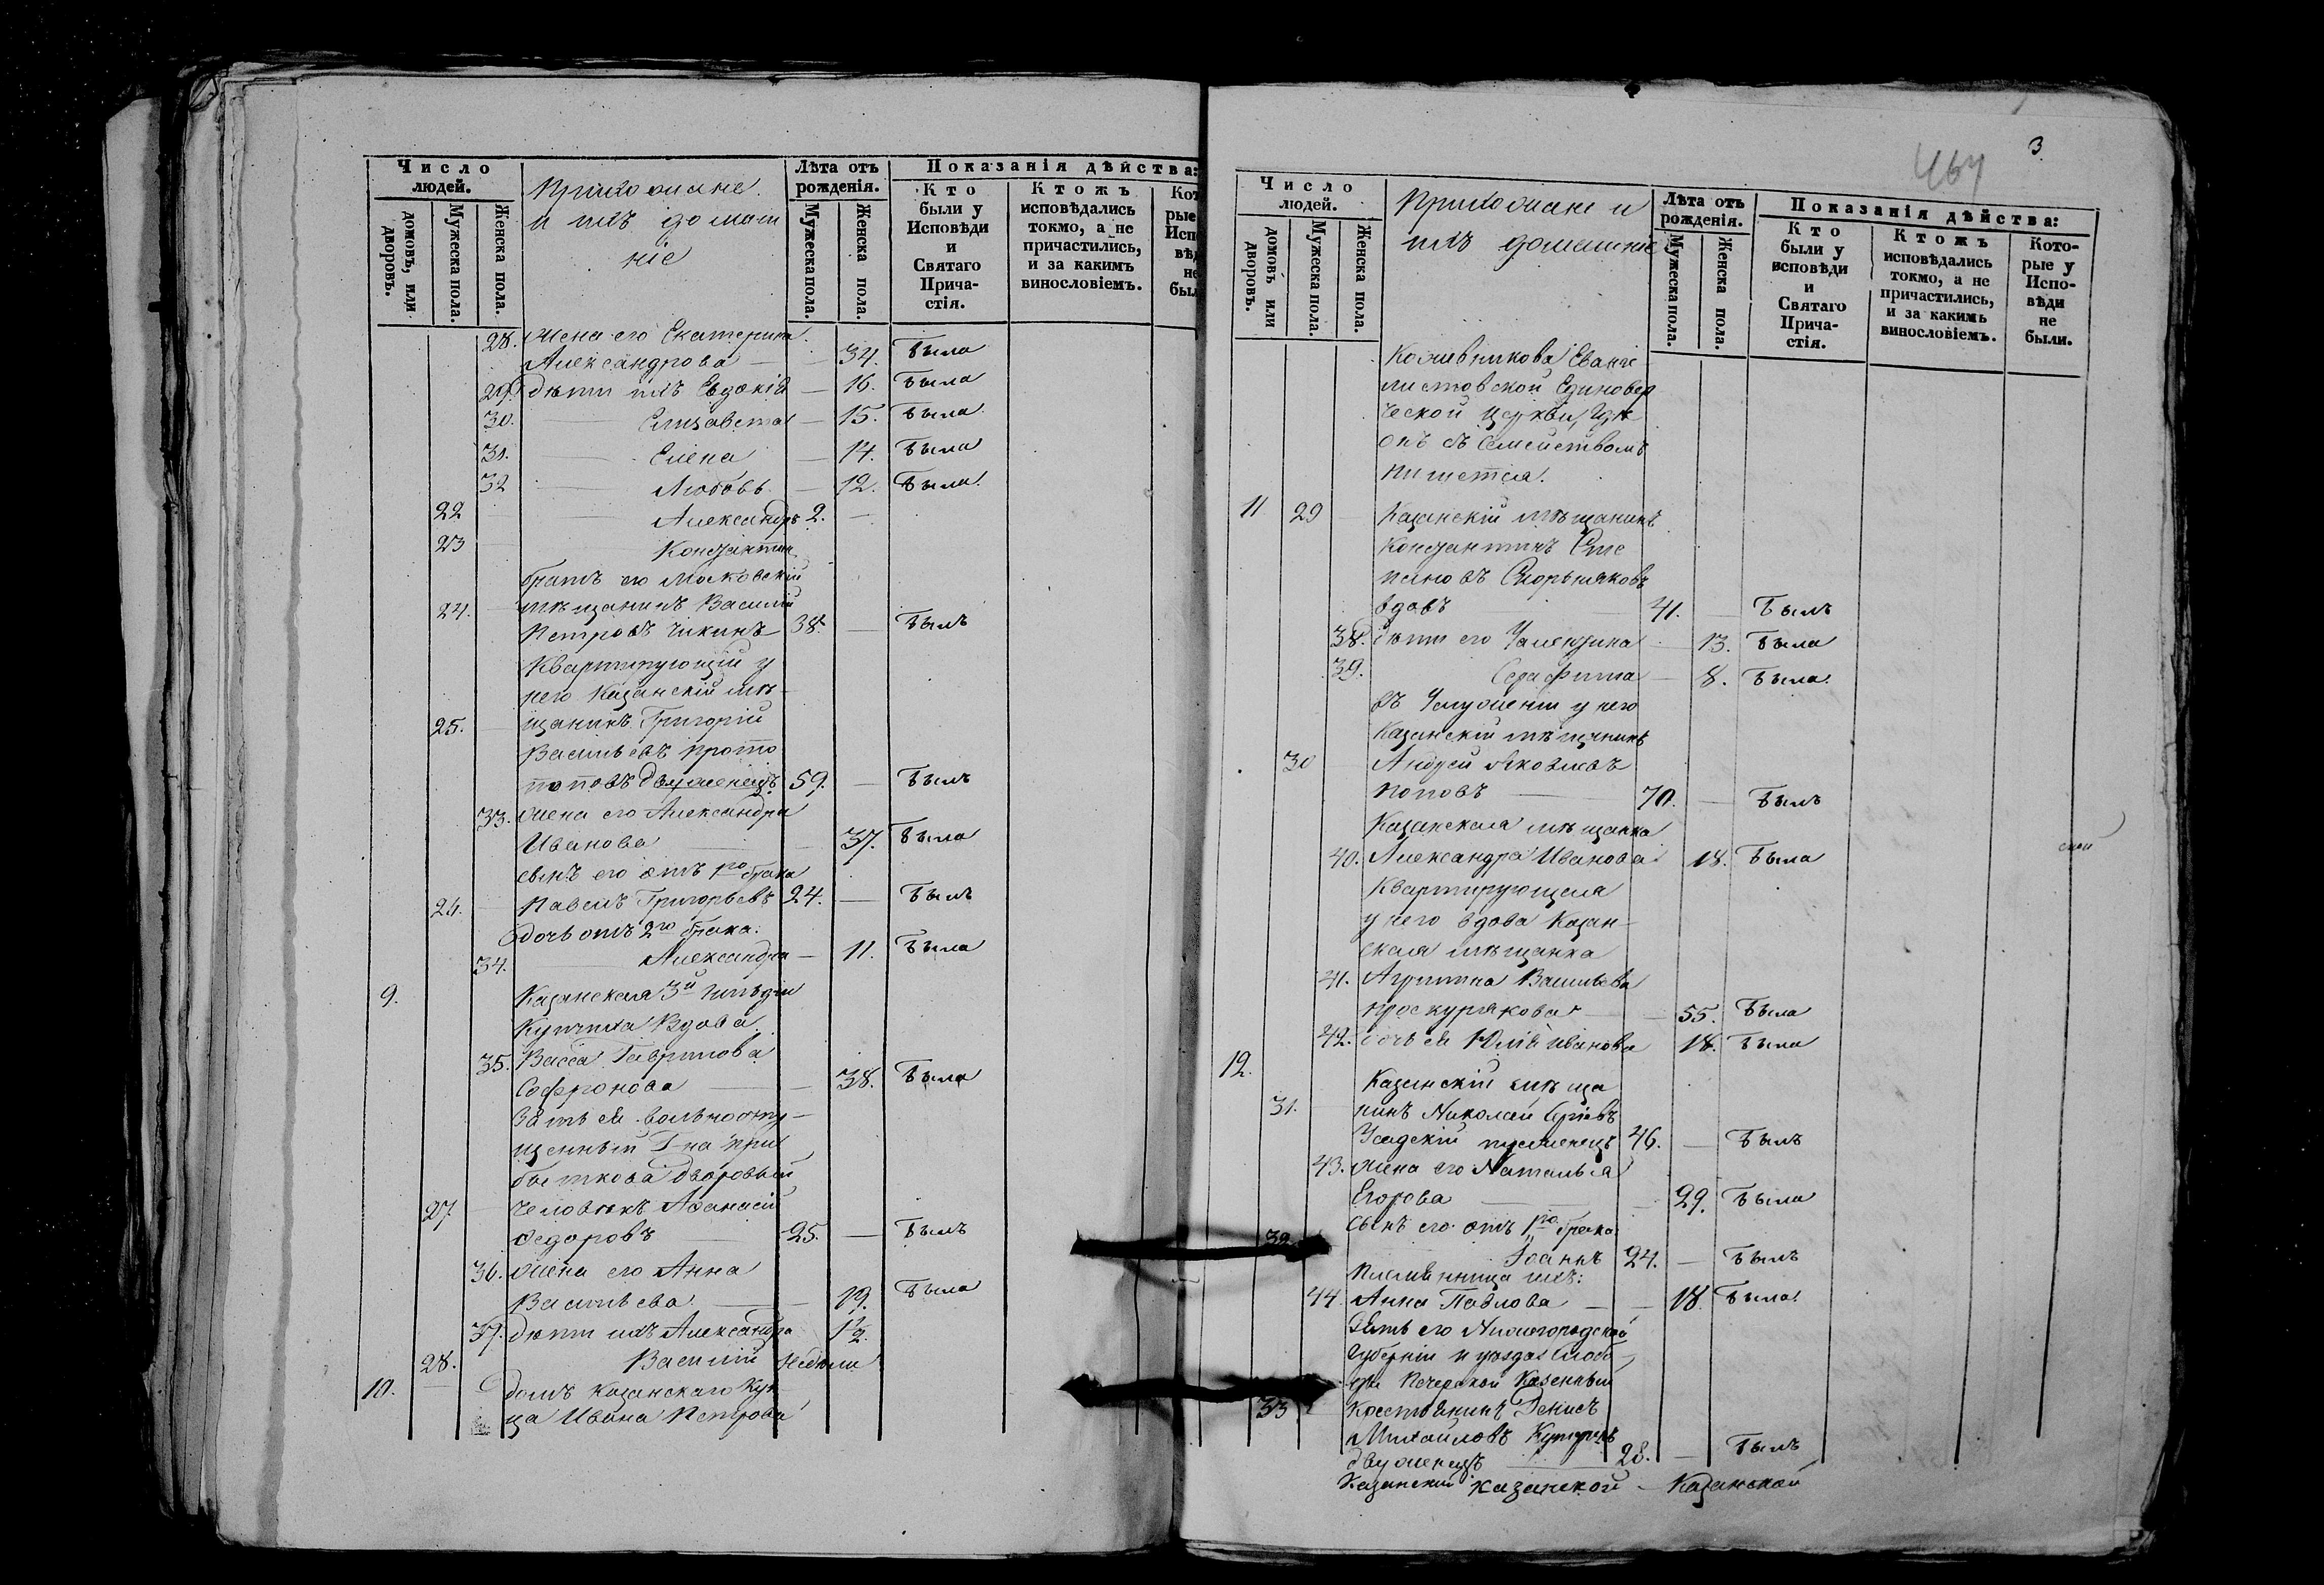 Число людей.
домовъ, или дворовъ.
Мужеска пола.
Женска пола.
Прихожане
и ихъ домаш
ніе
Лѣта отъ рожденія.
Мужеска пола.
Женска пола.
Показанія дѣйства:
Кто были у Исповѣди и Святаго Причастія.
Ктожъ исповѣдались токмо, а не причастились, и за какимъ винословіемъ.
28. Жена его Екатерина
Александрова — 34. Была
29. Дѣти ихъ Евдокія — 16. Была
30. Елизавета — 15. Была
31. Елена — 14. Была
32 Любовь — 12. Была
22 Александръ 2. —
23 Констянтин
братъ его Московскій
24. мѣщанинъ Василій
Петровъ Чикинъ 38. — Былъ
Квартирующій у
него Казанскій мѣ-
25. щанинъ Григорій
Васильевъ Прото
поповъ двуженецъ 59. — Былъ
33. Жена его Александра
Иванова — 37. Была
сынъ его отъ 1го брака
26. Павелъ Григорьевъ 24. — Былъ
дочь отъ 2го брака:
34. Александра — 11. Была
9. Казанская 3й гильдіи
Купчиха Вдова
35. Васса Гаврилова
Софронова — 38. Была
Зять ея вольноотпу-
щенный Г-на При
быткова дворовый
27. человѣкъ Аѳанасій
Ѳедоровъ 25. — Былъ
36. Жена его Анна
Васильева — 19. Была
37. Дѣти ихъ Александра 1½.
28. Василій недѣли
10. Домъ Казанскаго Куп
ца Ивана Петрова
3.
464
Число людей.
домовъ или дворовъ.
Мужеска пола.
Женска пола.
Прихожане и
ихъ домашніе
Лѣта отъ рожденія.
Мужеска пола.
Женска пола.
Показанія дѣйства:
Кто были у исповѣди и Святаго Причастія.
Ктожъ исповѣдались токмо, а не причастились, и за какимь винословіемъ.
Которые у Исповѣди не были.
Кожевникова Еванге
листовской Единовер
ческой церкви, гдѣ
онъ съ Семействомъ
пишется.
11 29 Казанскій мѣщанинъ
Констянтинъ Сте
пановъ
вдовъ 41. — Былъ
38. Дѣти его — 13. Была
39. Серафима — 8. Была
въ Услуженіи у него
Казанскій мѣщанинъ
30 Андрей Яковлевъ
Поповъ 70. — Былъ
Казанская мѣщанка
40. Александра Иванова 18. Была
Квартирующая
у него вдова Казан-
ская мѣщанка
41. Агрипина Васильева
Проскурякова — 55. Была
42. дочь ея Юлія Иванова 18. Была
12. Казанскій мѣща
31. нинъ Николай
46. — Былъ
43. Жена его Наталья
Егорова — 29. Была
32 Сынъ его отъ 1го брака
Іоаннъ 24. — Былъ
Племянница ихъ:
44. Анна Павлова — 18. Была
Зять его Нижегородской
Губерніи и уѣзда Слобо-
ды Печерской Казенный
33 Крестьянинъ Денисъ
Михайловъ
двуженецъ 28. — Былъ
Казанскій Казанской - Казанской